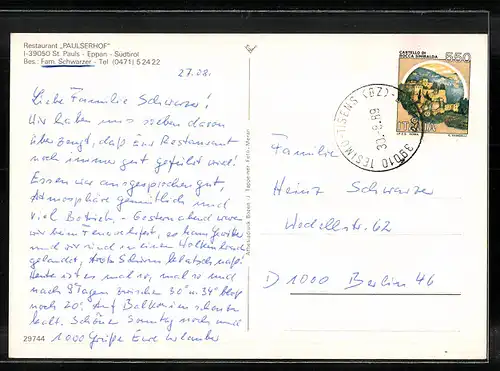 Restaurant „PAULSERHOF“
I-39050 St. Pauls - Eppan - Südtirol
Bes.: Fam. Schwarzer - Tel (0471) 52422
27.08.
Liebe Familie Schwarzer!
Wir haben uns soeben davon
überzeugt, daß Eur Restaurant
noch immer gut geführt wird!
Essen war ausgesprochen gut,
Atmosphäre gemütlich und
viel Betrieb. - Gestern abend waren
wir beim Feuerwehrfest, es kam Gewitter
und wir sind in einen Wolkenbruch
gelandet, trotz Schirm klatschnaß!
Heute ist es mal so, mal so und
nach 9 Tagen zwischen 30° u. 34° bloß
noch 20°. Auf Balkonien
kalt. Schönen Sonntag noch und
1000 Grüße Eure Urlauber
29744
CASTELLO DI
ROCCA SINIBALDA
550
ITALIA
39010 TESIMO-TISENS (BZ)
30.8.89
Familie
Heinz Schwarzer
Wedellstr. 62
D 1000 Berlin 46